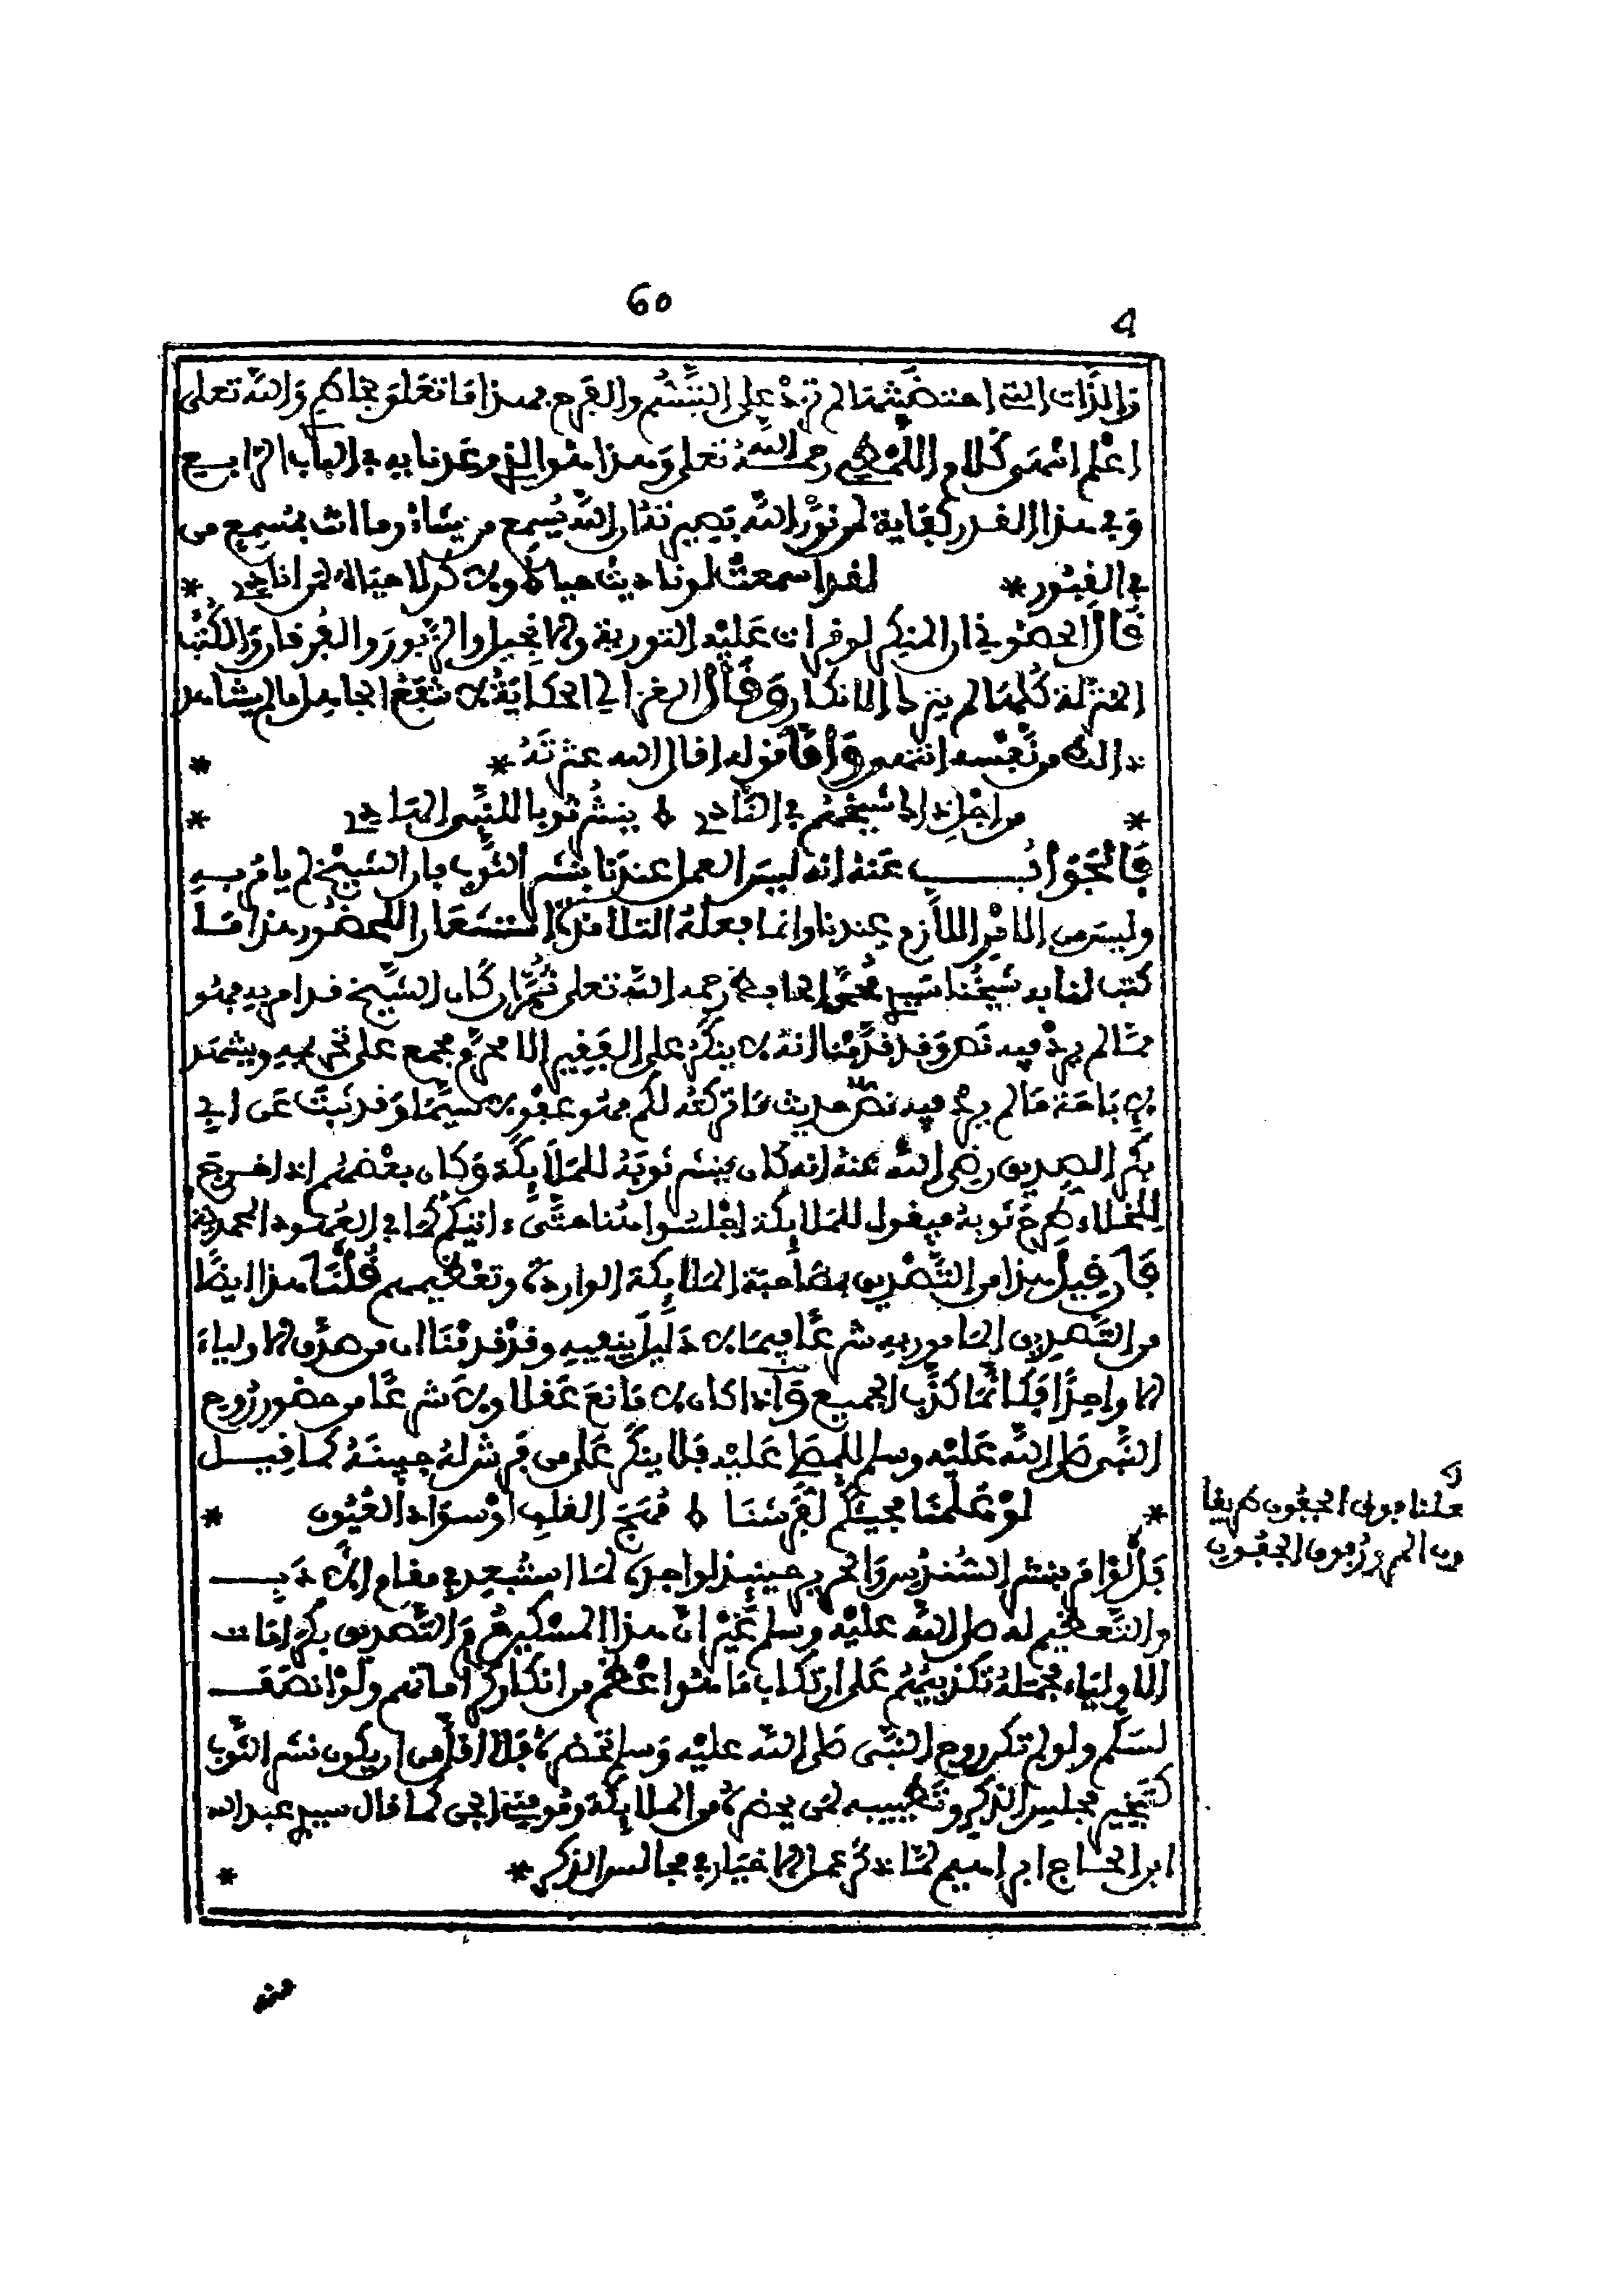 60
والذات التي احتضنتها لم تزد على التبسم والفرح بهذا ما تعلق بخاطري والله تعلى
اعلم انتهى كلام اللمطي رحمه الله تعلى وهذا هو الذي وعدنا به في الباب الرابع
وفي هذا القدر كفاية لمن نور الله بصيرته ان الله يسمع من يشاء وما انت بمسمع من
في القبور * لقد اسمعت لو ناديت حيا ولاكن لا حياة لمن انادي *
قال الحضوني ان المنكر لو قرات عليه التورية والانجيل والزبور والفرقان والكتب
المنزلة كلها لم يزد الا الانكار وقال الغزالي الحكاية لا تنفع الجاهل ما لم يشاهد
ذالك من نفسه انتهى واما قوله اقال الله عثرته * *
* من اجل ذا شيخهم في النادي ينشر ثوبا للنبي الهادي *
فالجواب عنه انه ليس العمل عندنا بنشر الثوب بان الشيخ لم يامر به
وليس من الامر اللازم عندنا وانما يفعله التلامذة استشعارا للحضور هذا ما
كتب لنا به شيخنا سيدي محمد الحافظ رحمه الله تعلى ثم ان كان الشيخ قد امر به فهو
مما لم يرد فيه نص وقد قدمنا انه لا ينكر على الفقير الا محرم مجمع على تحريمه ويشهد
لاباحة ما لم يرد فيه نص حديث ما تركته لكم فهو عفو لا سيما وقد ثبت عن ابي
بكر الصديق رضي الله عنه انه كان ينشر ثوبه للملائكة وكان بعضهم اذا خرج
للخلاء طرح ثوبه فيقول للملائكة اجلسوا هنا حتى ءاتيكم كما في العهود المحمدية
فان قيل هذا من التصديق بمصاحبة الملائكة الواردة وتعظيمهم قلنا هذا ايضا
من التصديق المامور به شرعا فيما لا دليل ينفيه وقد قدمنا ان من صدق الاولياء
الا واحدا فكانما كذب الجميع واذا كان لا مانع عقلا ولا شرعا من حضور روح
النبي صلى الله عليه وسلم للمصلي عليه فلا ينكر على من فرش له جبينه كما قيل
* لو علمنا مجيئكم لفرشنا مهج القلب او سواد العيون *
بل لو امر بنشر السندس والحرير حينئذ لواجده لما استبعد في مقام الادب
والتعظيم له صلى الله عليه وسلم غير ان هذا المسكين عدم التصديق بكرامات
الاولياء فحمله تكذيبهم على ارتكاب ما هو اعظم من انكار كراماتهم ولو انصف
لسلم ولو لم تكن روح النبي صلى الله عليه وسلم تحضره فلا اقل من ان يكون نشر الثوب
كتبخير مجلس الذكر وتطييبه لمن يحضره من الملائكة ومومني الجن كما قال سيدي عبد الله
ابن الحاج ابراهيم لما ذكر عمل الاخيار في مجالس الذكر * *